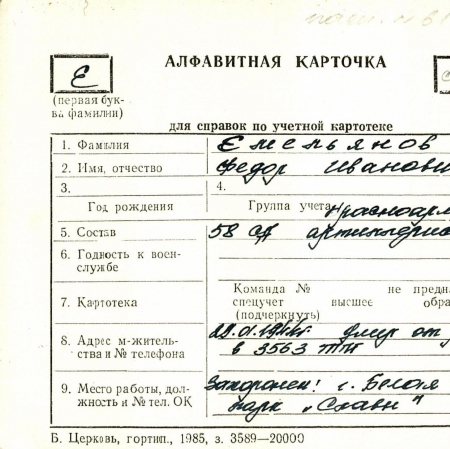 Е
АЛФАВИТНАЯ КАРТОЧКА
(первая бук-
ва фамилии)
для справок по учетной картотеке
1. Фамилия Емельянов
2. Имя, отчество Федор Иванови
3.
Год рождения
4.
Группа учета Красноарм
5. Состав 58 СД артиллерис
6. Годность к воен-
службе
7. Картотека
Команда № не предна
спецучет высшее обра
(подчеркнуть)
8. Адрес м-житель-
ства и № телефона
22.01.1944г умер от
в 3563 ТППГ
9. Место работы, дол-
жность и № тел. ОК
Захоронен: г. Белая
парк „Славы"
Б. Церковь, гортип., 1985, з. 3589—20000